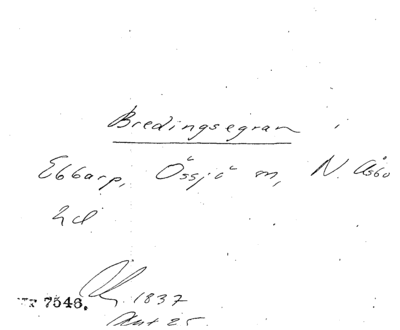 Bredingsegran
Ebbarp, Össjö m, N. Åsbo
hd
7546. 1837